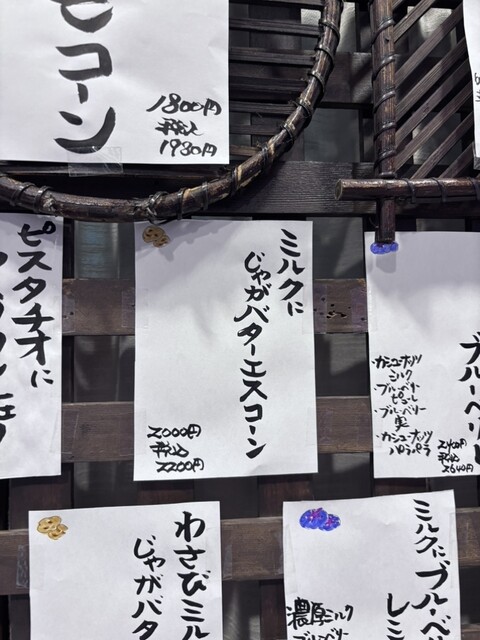 コーン
1800円
税込
1980円
ピスタチオに
ミルクに
じゃがバターエスコーン
2000円
税込
2200円
ブルーベリー
・カシューナッツ
ミルク
・ブルーベリー
ピューレ
・ブルーベリー
実
・カシューナッツ
パラパラ
2400円
税込
2640円
わさびミル
じゃがバタ
ミルクにブルーベ
レミ
濃厚ミルク
ブルーベリー